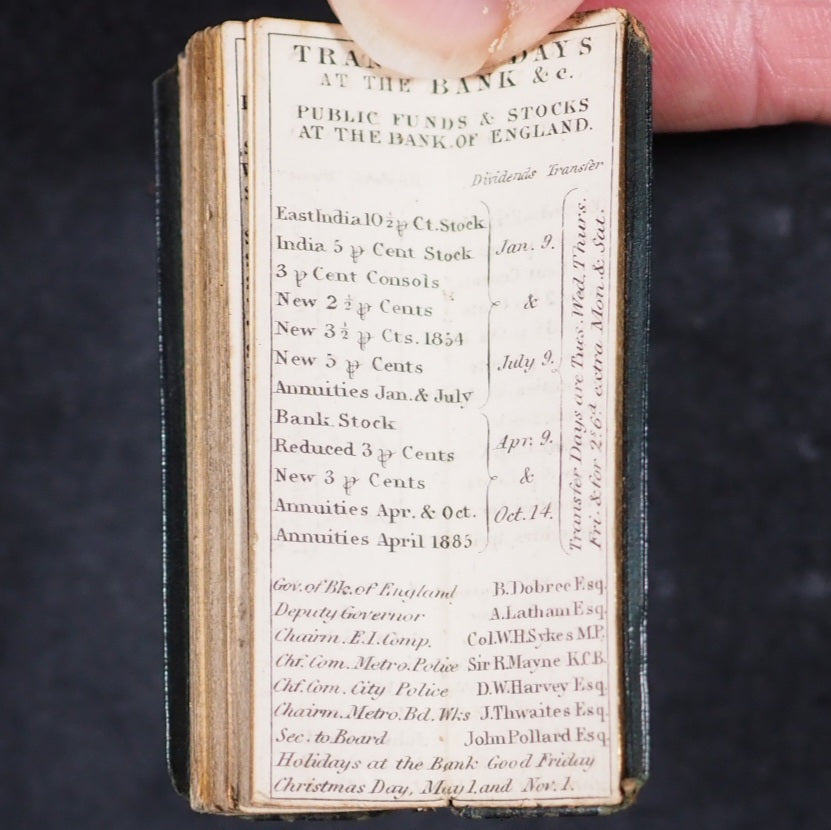 TRAN DAYS
AT THE BANK & c.
PUBLIC FUNDS & STOCKS
AT THE BANK OF ENGLAND.
Dividends Transfer
East India 10 ½ ⅌ Ct. Stock
India 5 ⅌ Cent Stock
3 ⅌ Cent Consols
New 2 ½ ⅌ Cents
New 3 ½ ⅌ Cts. 1854
New 5 ⅌ Cents
Annuities Jan. & July
Jan. 9.
&
July 9.
Bank Stock
Reduced 3 ⅌ Cents
New 3 ⅌ Cents
Annuities Apr. & Oct.
Annuities April 1885
Apr. 9.
&
Oct. 14.
Transfer Days are Tues. Wed. Thurs.
Fri. & for 2s 6d extra Mon. & Sat.
Gov. of Bk. of England B. Dobree Esq.
Deputy Governor A. Latham Esq.
Chairn. E.I. Comp. Col. W.H. Sykes M.P.
Chf. Com. Metro. Police Sir R. Mayne K.C.B.
Chf. Com. City Police D.W. Harvey Esq.
Chairm. Metro. Bd. Wks J. Thwaites Esq.
Sec. to Board John Pollard Esq.
Holidays at the Bank Good Friday
Christmas Day, May 1. and Nov. 1.